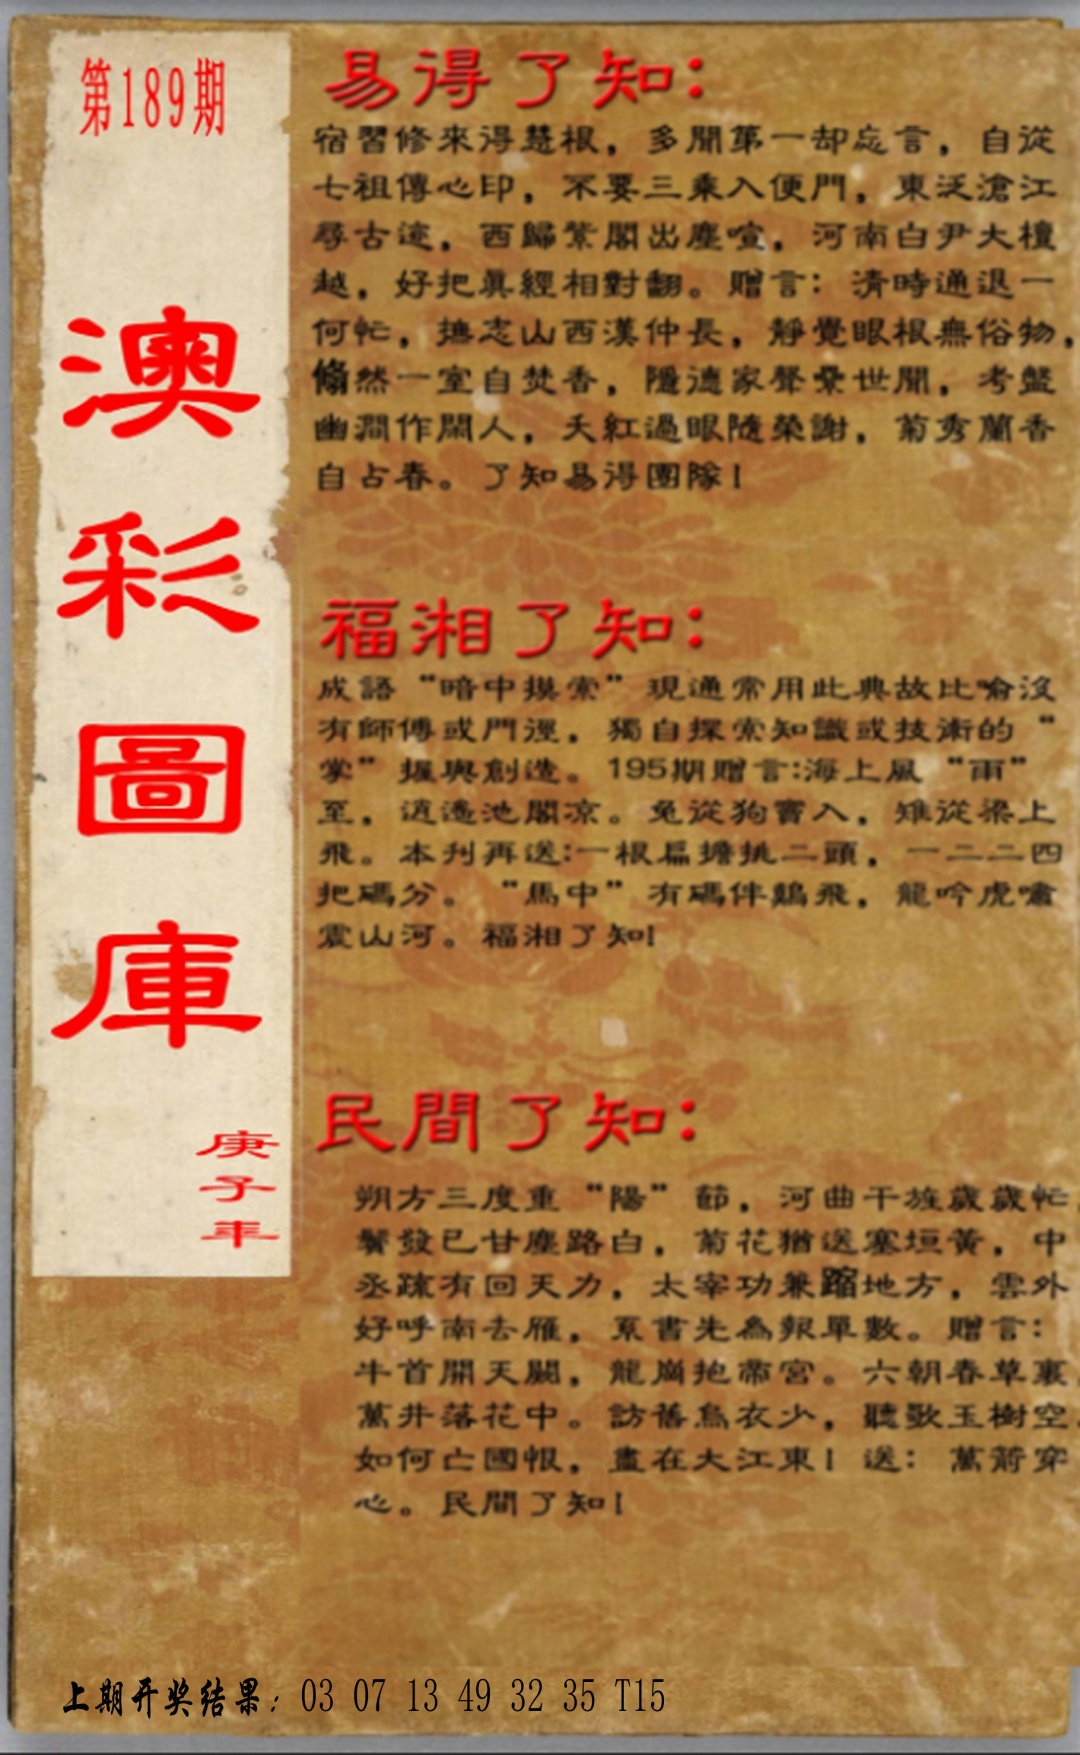 第189期
澳
彩
圖
庫
庚
子
年
易得了知：
宿習修來得慧根，多聞第一却忘言，自從
七祖傳心印，不要三乘入便門，東泛滄江
尋古迹，西歸紫閣出塵喧，河南白尹大檀
越，好把真經相對翻。贈言：清時通退一
何忙，撫志山西漢仲長，靜覺眼根無俗物，
翛然一室自焚香，隱德家聲 世聞，考盤
幽澗作閑人，夭紅過眼隨榮謝，菊秀蘭香
自占春。了知易得團隊！
福湘了知：
成語“暗中摸索”現通常用此典故比喻沒
有師傅或門徑，獨自探索知識或技術的“
掌”握與創造。195期贈言:海上風“雨”
至，逍遙池閣凉。兔從狗竇入，雉從梁上
飛。本刊再送:一根扁擔挑二頭，一二二四
把碼分。“馬中”有碼伴鷄飛，龍吟虎嘯
震山河。福湘了知!
民間了知：
朔方三度重“陽”節，河曲干旌歲歲忙，
鬢發已甘塵路白，菊花猶送塞垣黃，中
丞疏有回天力，太宰功兼 地方，雲外
好呼南去雁，系書先為報單數。贈言：
牛首開天闕，龍崗抱帝宮。六朝春草裏，
萬井落花中。訪舊烏衣少，聽歌玉樹空。
如何亡國恨，盡在大江東！送：萬箭穿
心。民間了知！
上期开奖结果：03 07 13 49 32 35 T15